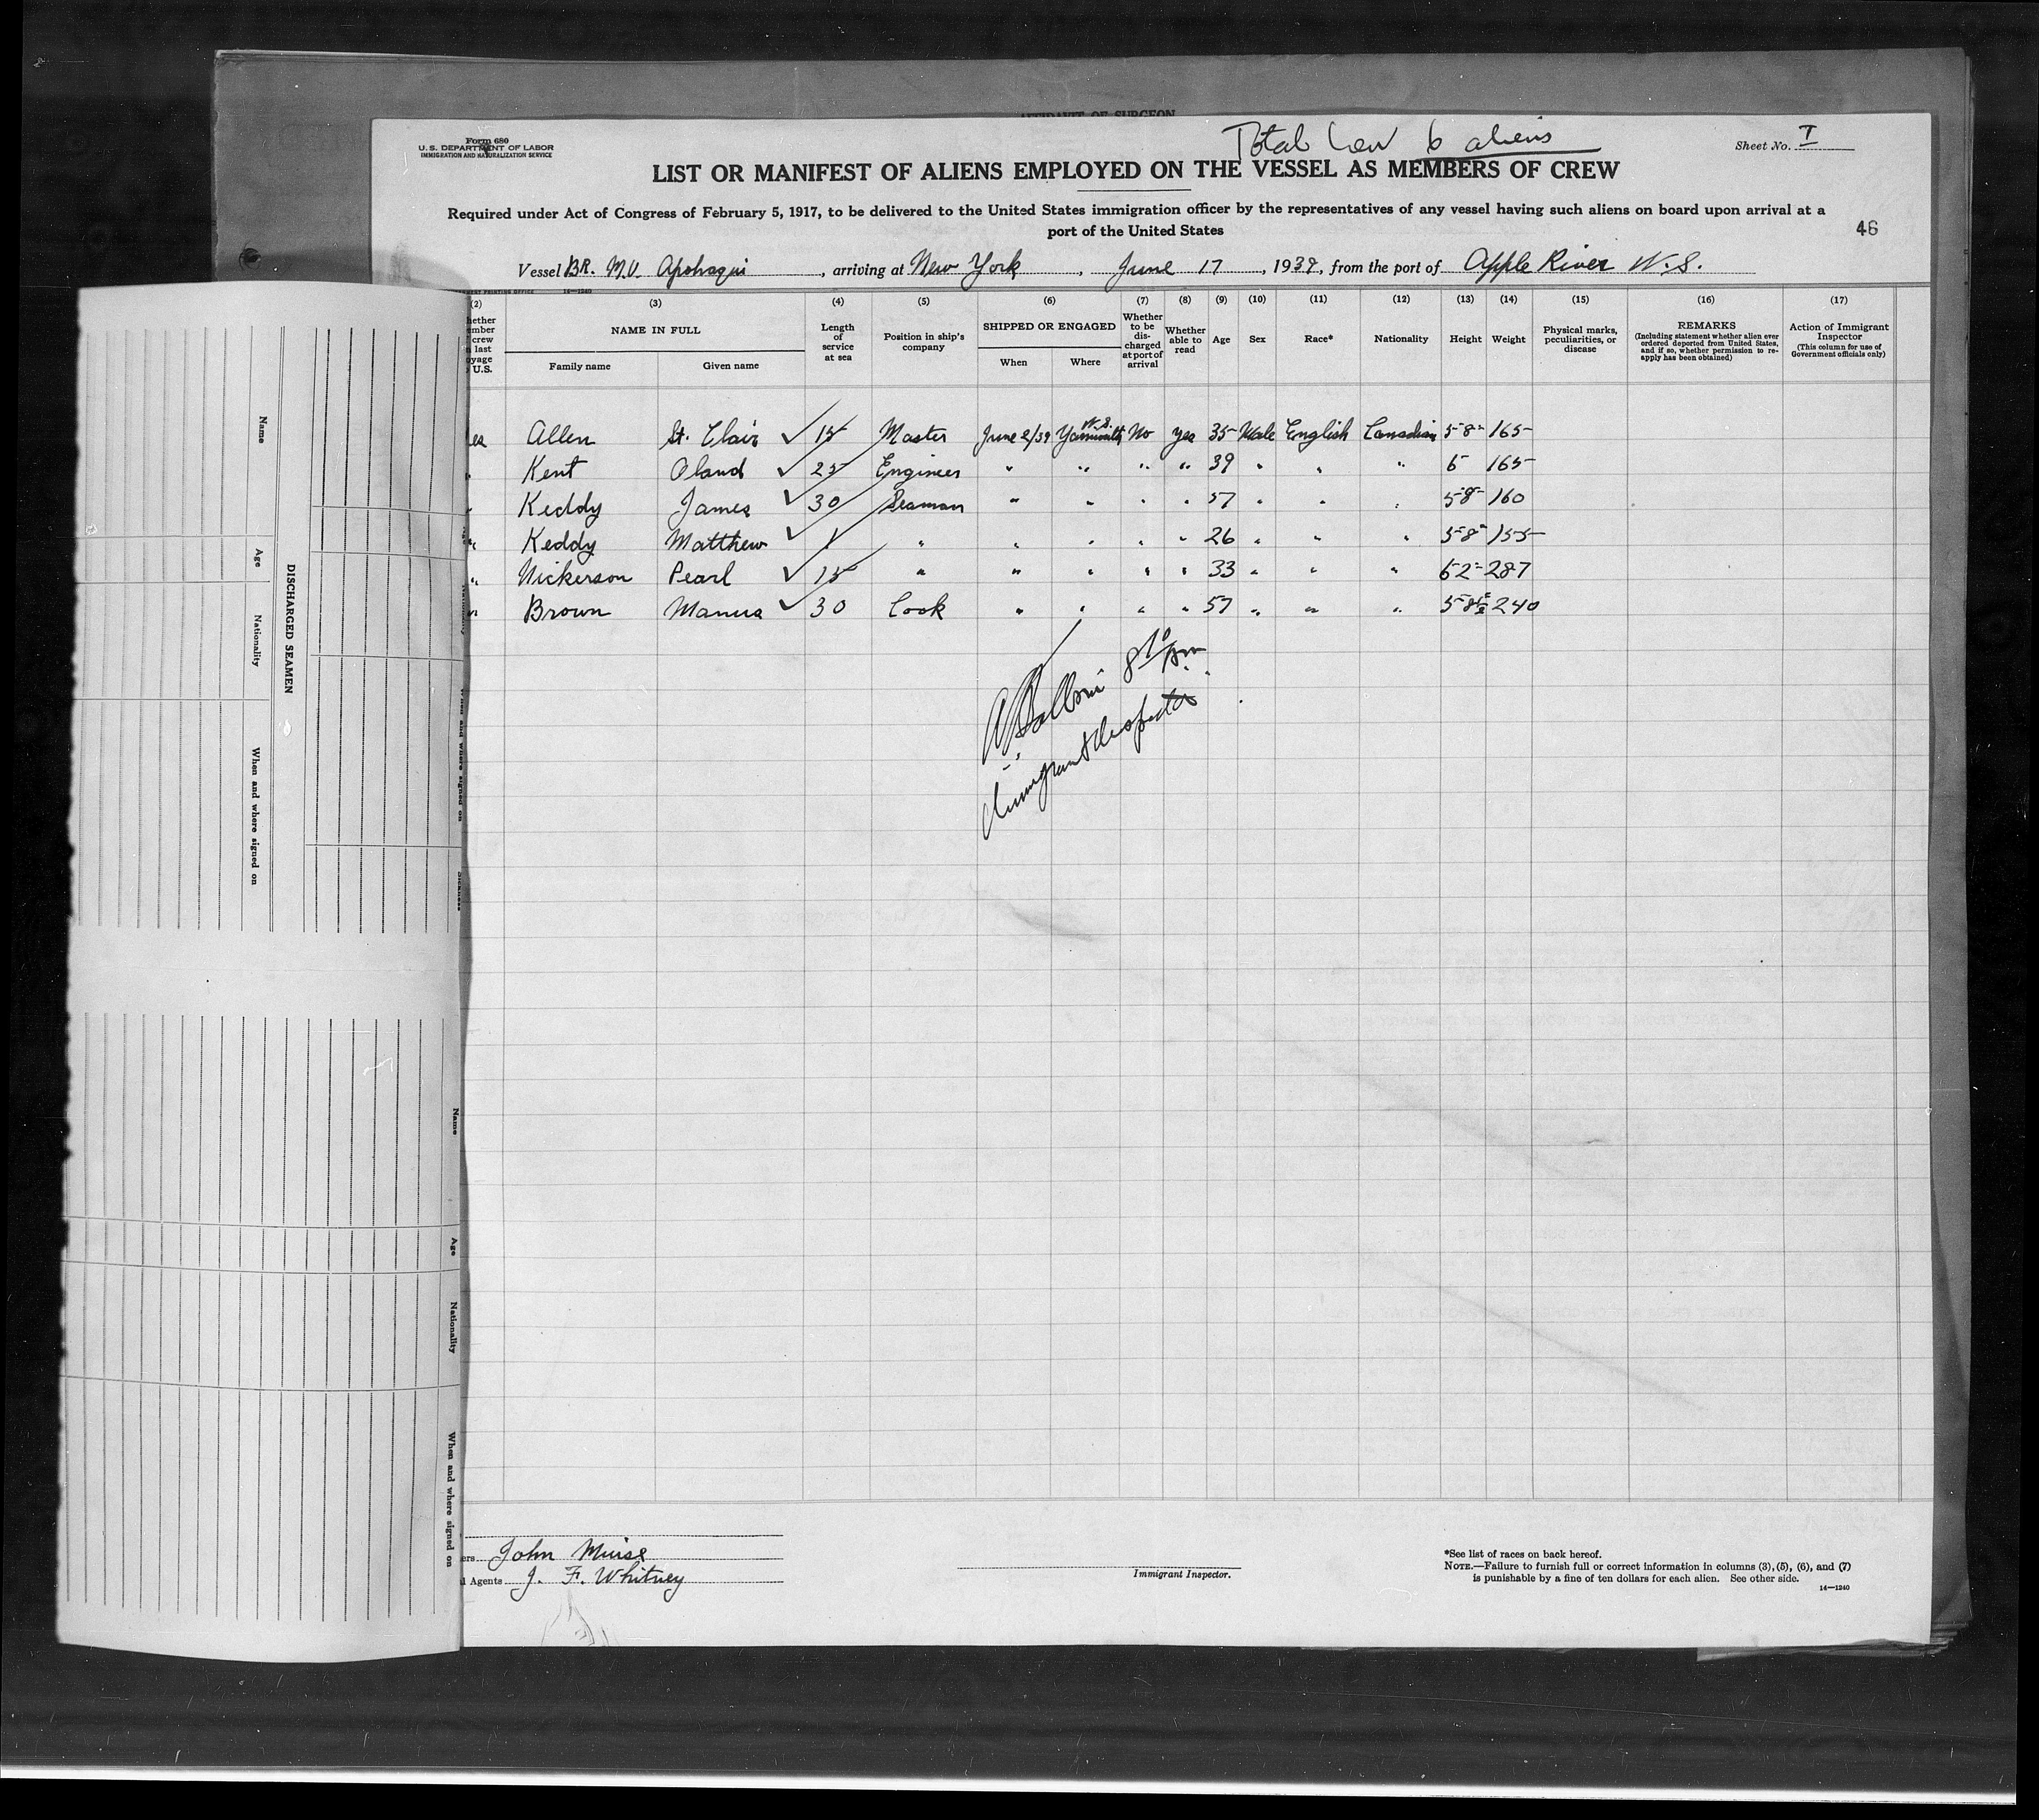 AFFIDAVIT OF SURGEON
Form 680
U. S. DEPARTMENT OF LABOR
IMMIGRATION AND NATURALIZATION SERVICE
Total Crew 6 aliens
Sheet No. I
LIST OR MANIFEST OF ALIENS EMPLOYED ON THE VESSEL AS MEMBERS OF CREW
Required under Act of Congress of February 5, 1917, to be delivered to the United States immigration officer by the representatives of any vessel having such aliens on board upon arrival at a
port of the United States
46
Vessel BR. M.V. Apohaqui, arriving at New York, June 17, 1939, from the port of Apple River N.S.
14—1240
(2) (3) (4) (5) (6) (7) (8) (9) (10) (11) (12) (13) (14) (15) (16) (17)
hether
ember
crew
last
oyage
U.S.
NAME IN FULL
Family name Given name
Length
of
service
at sea
Position in ship's
company
SHIPPED OR ENGAGED
When Where
Whether
to be
dis-
charged
at port of
arrival
Whether
able to
read
Age Sex Race* Nationality Height Weight
Physical marks,
peculiarities, or
disease
REMARKS
(Including statement whether alien ever
ordered deported from United States,
and if so, whether permission to re-
apply has been obtained)
Action of Immigrant
Inspector
(This column for use of
Government officials only)
es Allen St. Clair ✓ 15 Master June 2/39 Yarmouth N.S. No yes 35 Male English Canadian 5-8" 165
" Kent Oland ✓ 25 Engineer " " " " 39 " " " 6 165
" Keddy James ✓ 30 Seaman " " " " 57 " " " 5-8" 160
" Keddy Matthew ✓ 1 " " " " " 26 " " " 5-8" 155
" Nickerson Pearl ✓ 15 " " " " " 33 " " " 6-2" 287
" Brown Manus ✓ 30 Cook " " " " 57 " " " 5-8½ 240
8 10 pm
Immigrant Inspector
ers John Muise
l Agents J. F. Whitney
Immigrant Inspector.
*See list of races on back hereof.
NOTE.—Failure to furnish full or correct information in columns (3), (5), (6), and (7)
is punishable by a fine of ten dollars for each alien. See other side.
14—1240
DISCHARGED SEAMEN
Name
Age
Nationality
When and where signed on
Name
Age
Nationality
When and where signed on